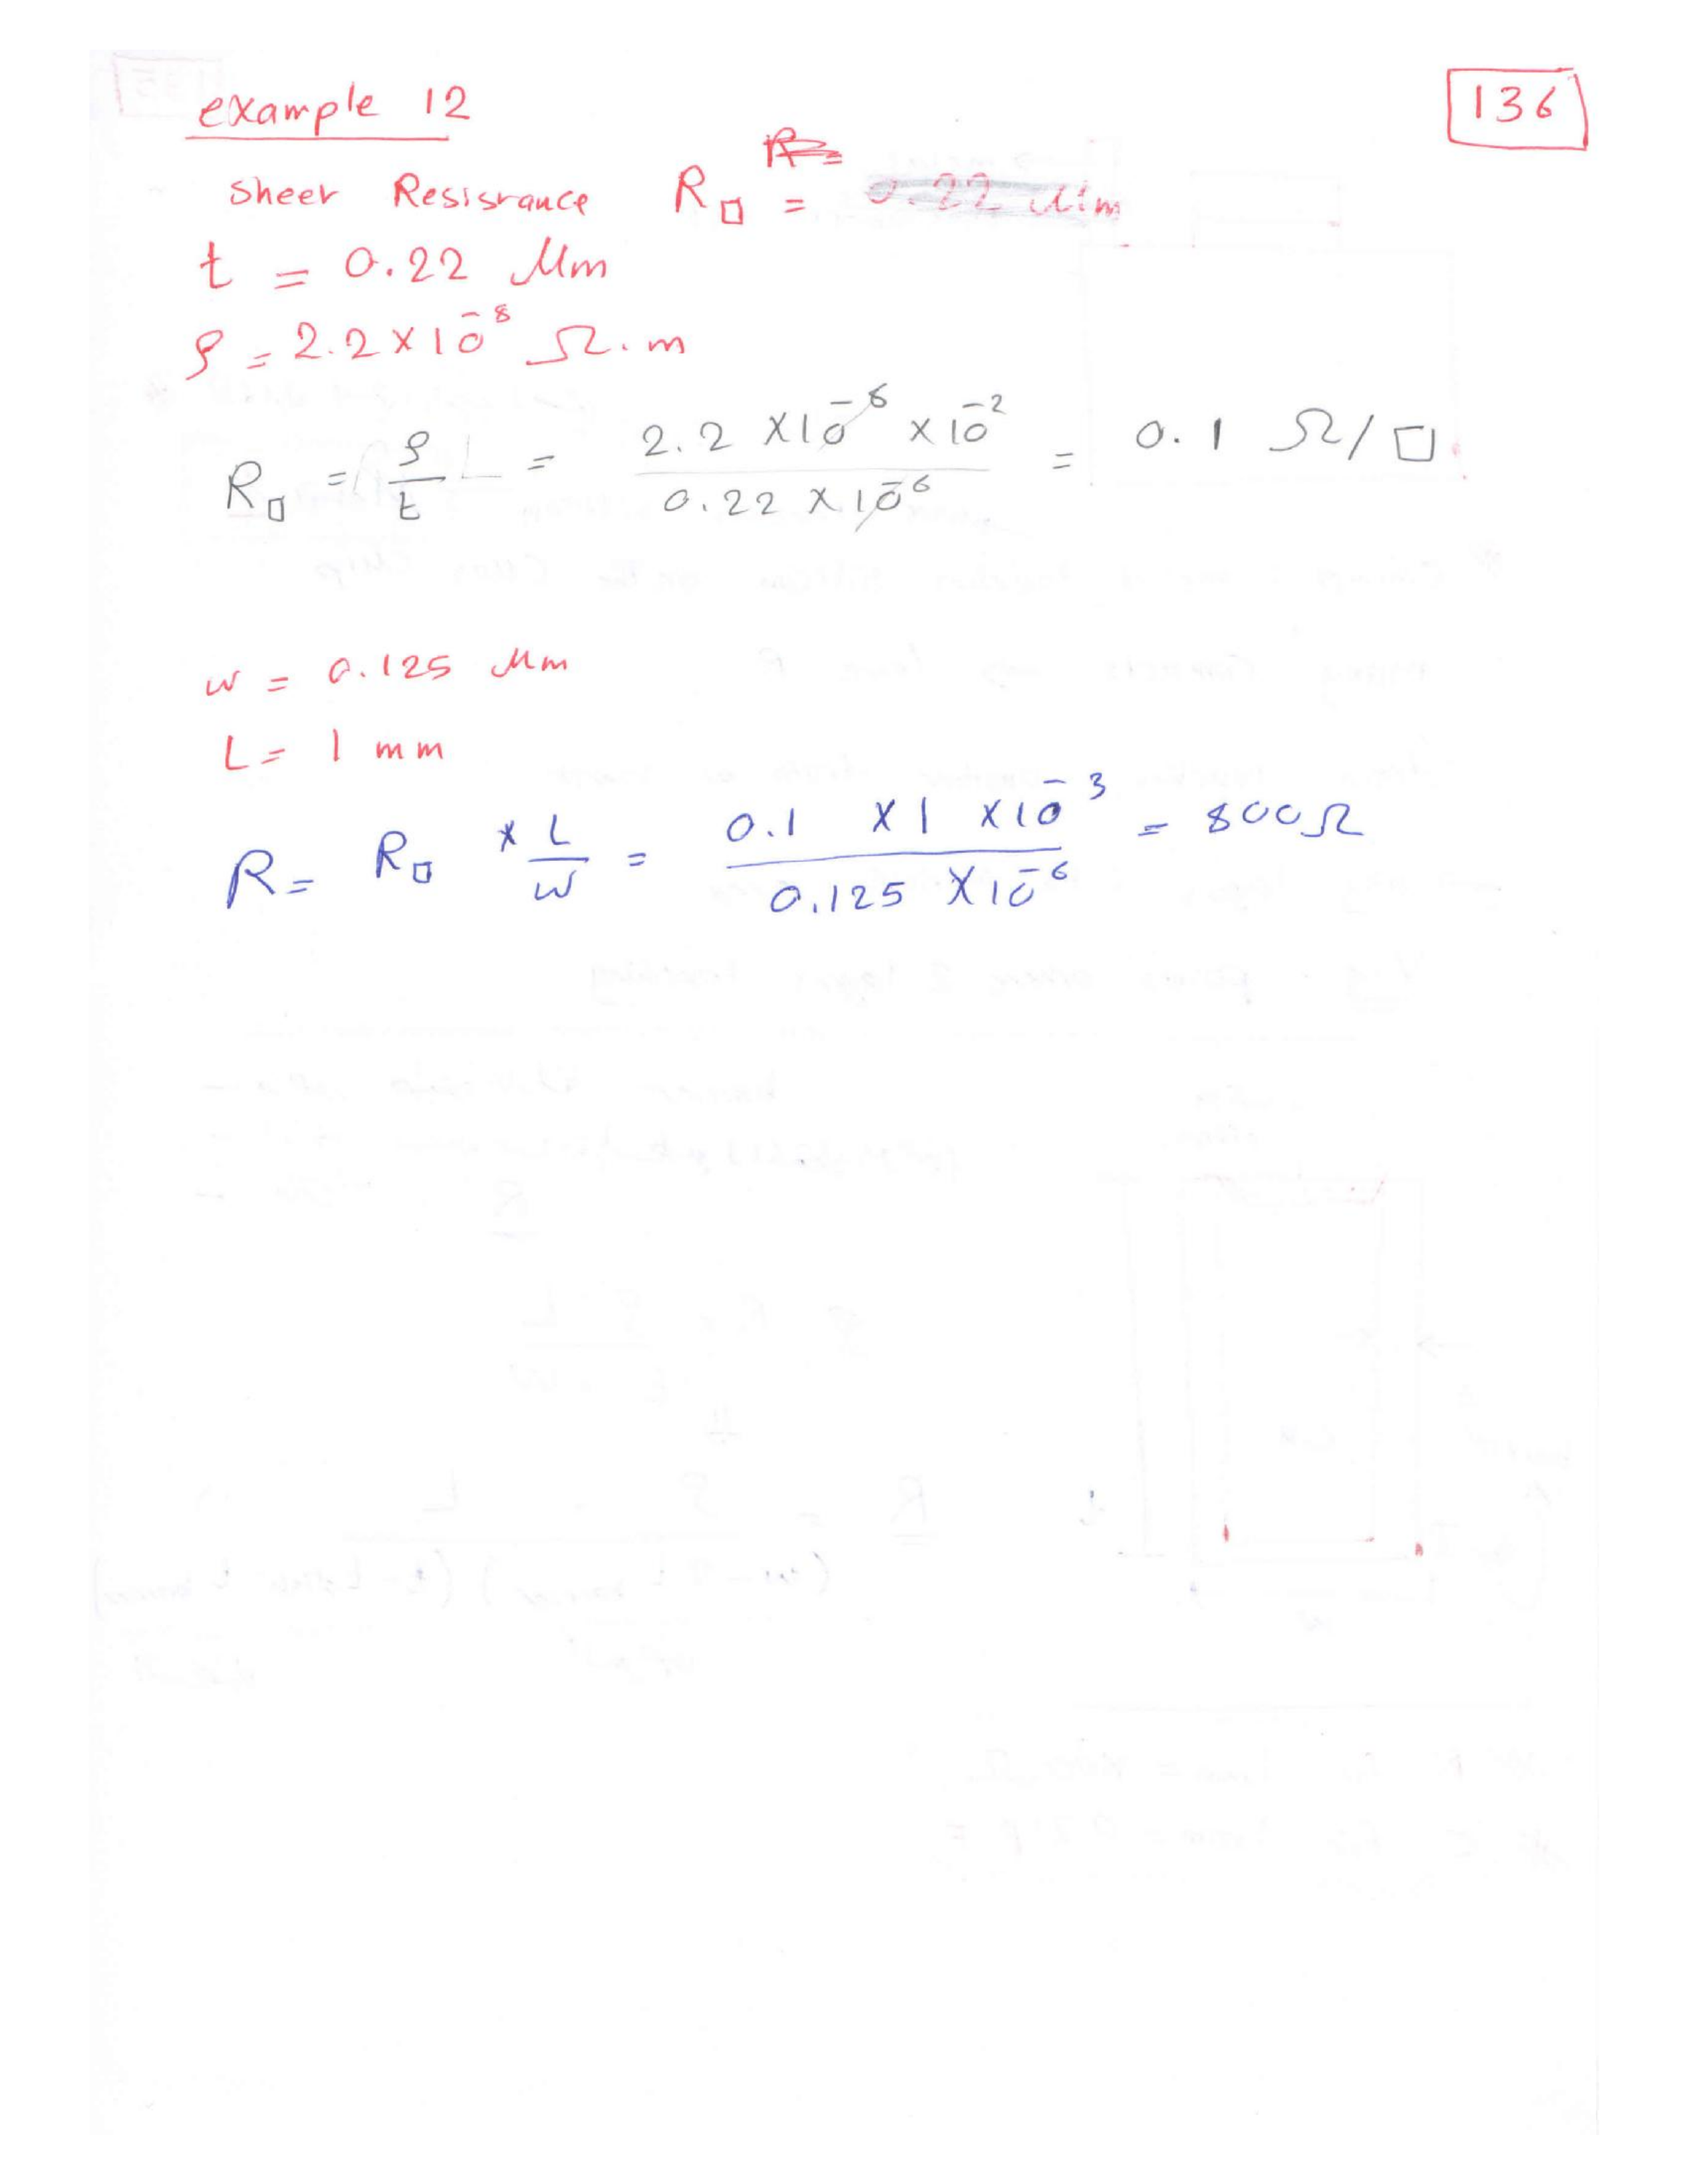 136
example 12
Sheer Resisrance R□ =
t = 0.22 Mm
ρ = 2.2 × 10⁻⁸ Ω.m
R□ = ρ/t = 2.2 × 10⁻⁶ × 10⁻² / 0.22 × 10⁻⁶ = 0.1 Ω/□
w = 0.125 Mm
L = 1 mm
R = R□ * L/W = 0.1 × 1 × 10⁻³ / 0.125 × 10⁻⁶ = 800Ω